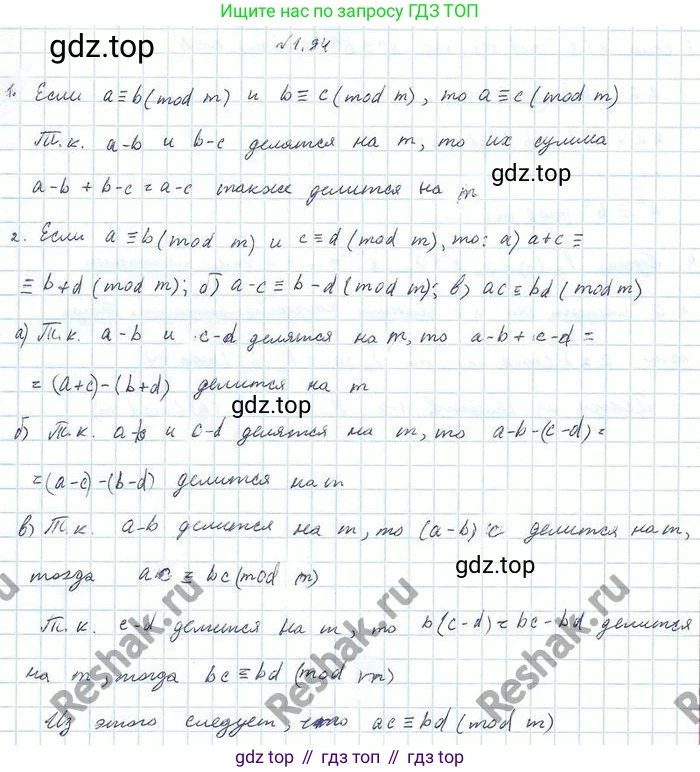 Ищите нас по запросу ГДЗ ТОП
gdz.top
№1.94
1. Если a≡b(mod m) и b≡c(mod m), то a≡c(mod m)
Т.к. a-b и b-c делятся на m, то их сумма
gdz.top
a-b+b-c=a-c также делится на m
2. Если a≡b(mod m) и c≡d(mod m), то: а) a+c≡
≡b+d(mod m); б) a-c≡b-d(mod m); в) ac≡bd(mod m)
а) Т.к. a-b и c-d делятся на m, то a-b+c-d=
=(a+c)-(b+d) делится на m
gdz.top
б) Т.к. a-b и c-d делятся на m, то a-b-(c-d)=
=(a-c)-(b-d) делится на m
в) Т.к. a-b делится на m, то (a-b)c делится на m,
gdz.top
тогда ac≡bc(mod m)
Т.к. c-d делится на m, то b(c-d)=bc-bd делится
на m, тогда bc≡bd(mod m)
Из этого следует, что ac≡bd(mod m)
Reshak.ru
Reshak.ru
Reshak.ru
gdz.top // гдз.top // гдз.топ